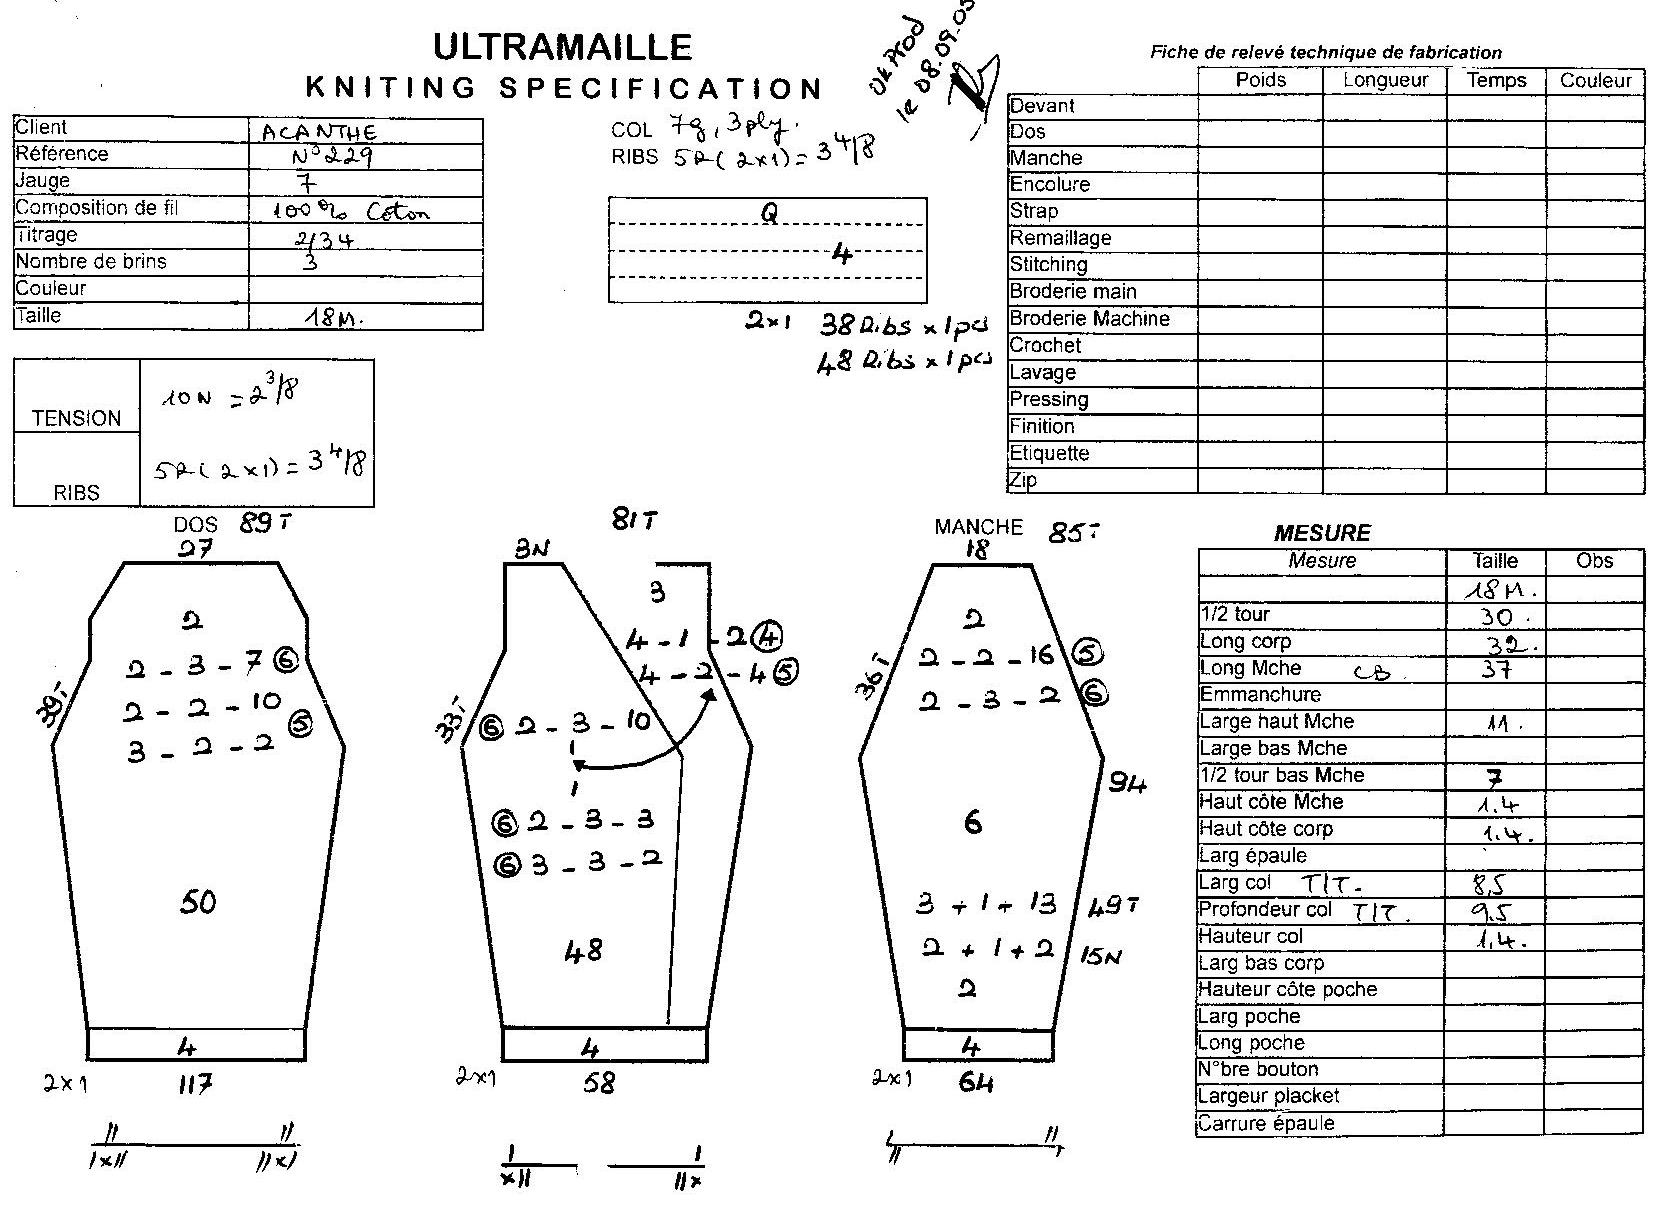 ULTRAMAILLE
KNITING SPECIFICATION
OK Prod
le 08.09.05
Client ACANTHE
Référence N°229
Jauge 7
Composition de fil 100% Coton
Titrage 2/34
Nombre de brins 3
Couleur
Taille 18M.
COL 7g, 3ply.
RIBS 5R(2x1)=3 4/8
Q
4
2x1 38 Ribs x 1pcs
48 Ribs x 1pcs
TENSION 10N = 2 3/8
RIBS 5R(2x1)=3 4/8
Fiche de relevé technique de fabrication
Poids Longueur Temps Couleur
Devant
Dos
Manche
Encolure
Strap
Remaillage
Stitching
Broderie main
Broderie Machine
Crochet
Lavage
Pressing
Finition
Etiquette
Zip
DOS 89T
27
2
2 - 3 - 7 ⑥
39T
2 - 2 - 10
3 - 2 - 2 ⑤
50
4
2x1 117
// //
/x// //x/
81T
3N
3
4 - 1 - 2 ④
4 - 2 - 4 ⑤
33T
⑥ 2 - 3 - 10
⑥ 2 - 3 - 3
⑥ 3 - 3 - 2
48
4
2x1 58
/ /
x// //x
MANCHE 85T
18
2
36T
2 - 2 - 16 ⑤
2 - 3 - 2 ⑥
94
6
3 + 1 + 13 49T
2 + 1 + 2 15N
2
4
2x1 64
MESURE
Mesure Taille Obs
18M.
1/2 tour 30.
Long corp 32.
Long Mche CB 37
Emmanchure
Large haut Mche 11.
Large bas Mche
1/2 tour bas Mche 7
Haut côte Mche 1.4
Haut côte corp 1.4.
Larg épaule
Larg col T/T. 8,5
Profondeur col T/T. 9.5
Hauteur col 1,4.
Larg bas corp
Hauteur côte poche
Larg poche
Long poche
N°bre bouton
Largeur placket
Carrure épaule